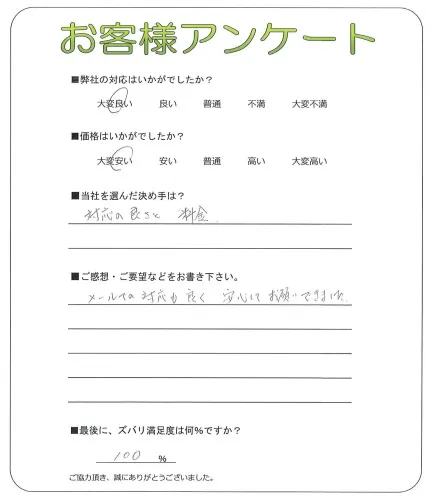 お客様アンケート
■弊社の対応はいかがでしたか？
大変良い 良い 普通 不満 大変不満
■価格はいかがでしたか？
大変安い 安い 普通 高い 大変高い
■当社を選んだ決め手は？
対応の良さと 料金
■ご感想・ご要望などをお書き下さい。
メールでの対応も良く 安心してお願いできました
■最後に、ズバリ満足度は何%ですか？
100 %
ご協力頂き、誠にありがとうございました。